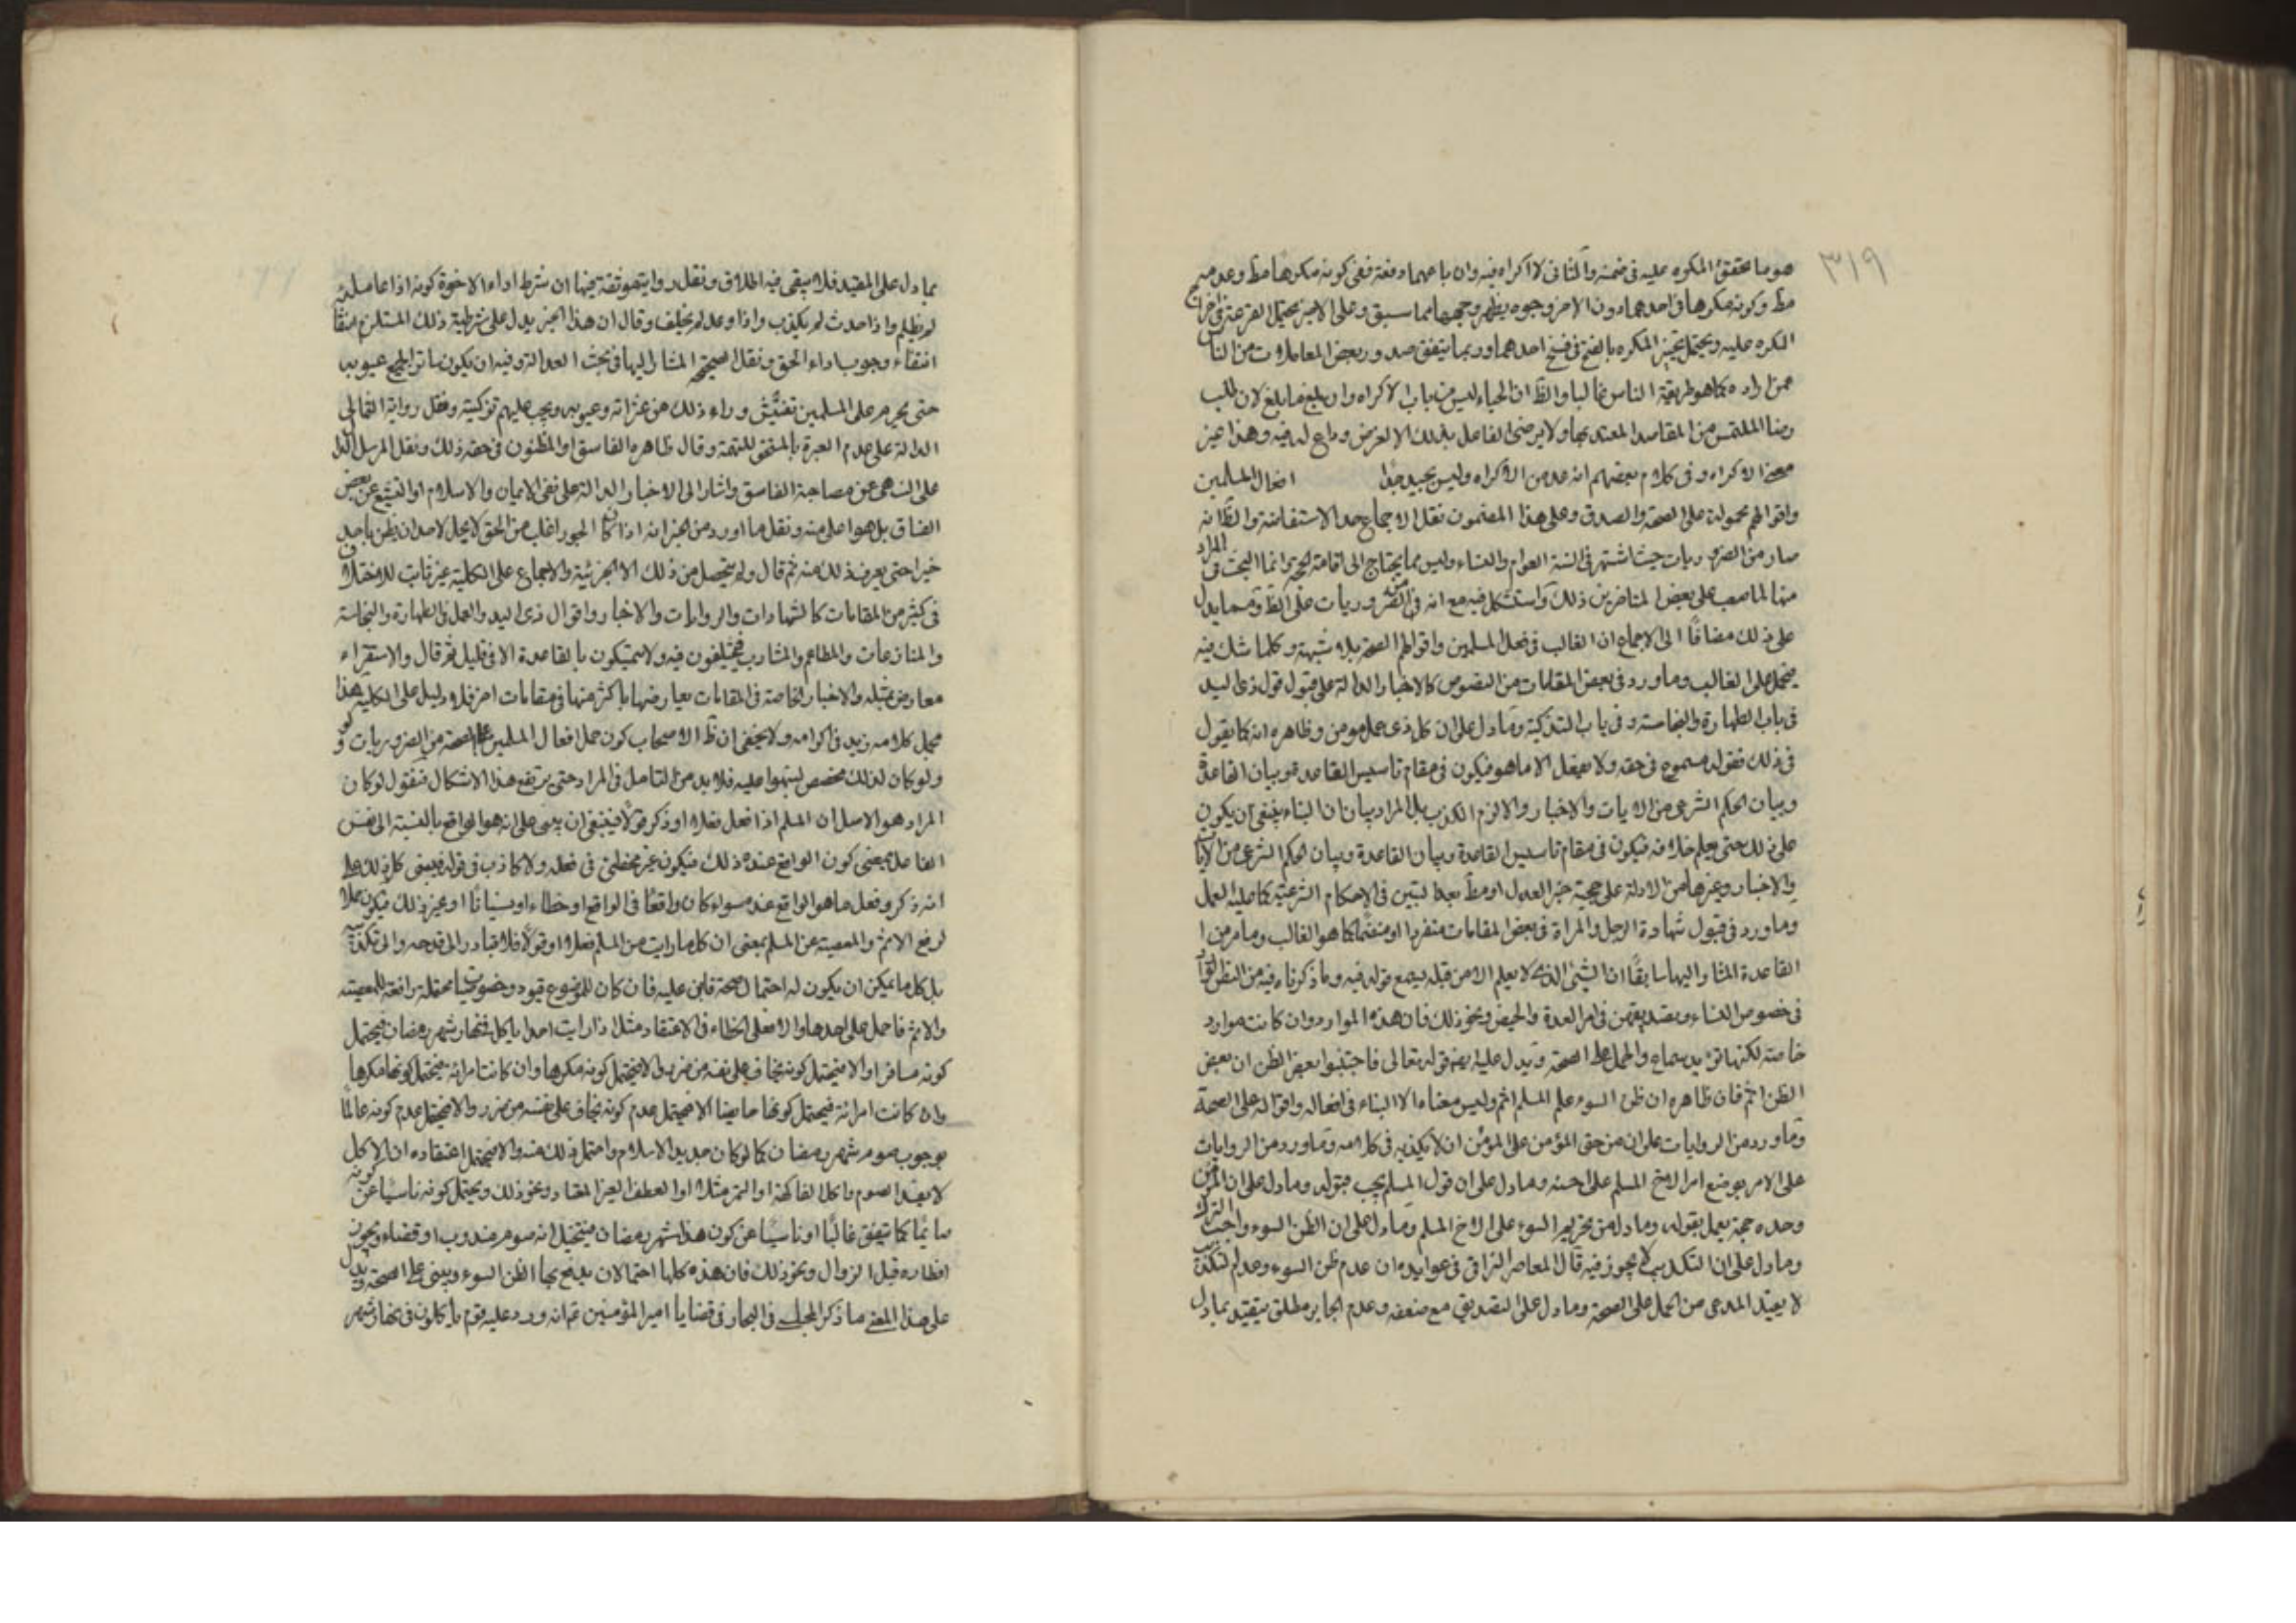 ٣١٩
هو ما تحقق المكره عليه في ضمنه والثاني لا اكراه فيه وان باعهما دفعة ففي كونه مكرها مط وعدمه
مط وكونه مكرها في احدهما دون الاخر وجوه يظهر وجهها مما سبق وعلى الاخير يحتمل القرعة في اخراج
المكره عليه ويحتمل تخيير المكره بالفتح في فسخ احدهما وربما يتفق صدور بعض المعاملات من الناس
عن اراده كما هو طريقة الناس غالبا والظ ان الحياء ليس من باب الاكراه وان بلغ ما بلغ لان طلب
رضا الملتمس من المقاصد المعتد بها ولا يرضى الفاعل بذلك الا لغرض وداع له فيه وهذا غير
معنى الاكراه وفي كلام بعضهم انه عد من الاكراه وليس بجيد جدا افعال المسلمين
واقوالهم محمولة على الصحة والصدق وعلى هذا المضمون نقل الاجماع حد الاستفاضة والظ انه
صار من الضروريات حيث اشتهر في السنة العوام والنساء وليس مما يحتاج الى اقامة الحجة وانما البحث في المراد
منها لما صعب على بعض المتاخرين ذلك واستشكل فيه مع انه من الضروريات على الظ ومما يدل
على ذلك مضافا الى الاجماع ان الغالب في فعل المسلمين واقوالهم الصحة بلا شبهة وكلما شك فيه
يحمل على الغالب وما ورد في بعض المقامات من النصوص كالاخبار الدالة على قبول قول ذي اليد
في باب الطهارة والنجاسة وفي باب التذكية وما دل على ان كل ذي عمل مومن وظاهره انه كما يقول
في ذلك فقوله مسموع في حقه ولا يفعل الا ما هو فيكون في مقام تاسيس القاعدة وبيان القاعدة
وبيان الحكم الشرعي من الايات والاخبار والا لزم الكذب بل المراد بيان ان البناء ينبغي ان يكون
على ذلك حتى يعلم خلافه فيكون في مقام تاسيس القاعدة وبيان القاعدة وبيان الحكم الشرعي من الايات
والاخبار وغيرها من الادلة على حجية خبر العدل او مط بعد التبين في الاحكام الشرعية كما عليه العمل
وما ورد في قبول شهادة الرجل والمراة في بعض المقامات منفردا او منضما كما هو الغالب وما مر من
القاعدة المشار اليها سابقا ان الشيئ الذي لا يعلم الا من قبله يسمع قوله فيه وما ذكرناه فيه من النظر
في خصوص النساء وتصديقهن في امر العدة والحيض ونحو ذلك فان هذه الموارد وان كانت موارد
خاصة لكنها تؤيد سماع والحمل على الصحة ويدل عليه ايضا قوله تعالى فاجتنبوا بعض الظن ان بعض
الظن اثم فان ظاهره ان ظن السوء على المسلم اثم وليس معناه الا البناء في افعاله واقواله على الصحة
وما ورد من الروايات على ان من حق المؤمن على المؤمن ان لا يكذبه في كلامه وما ورد من الروايات
على الامر بوضع امر الاخ المسلم على احسنه وما دل على ان قول المسلم يجب قبوله وما دل على ان المؤمن
وحده حجة يعمل بقوله وما دل من تحريم السوء على الاخ المسلم وما دل على ان الظن السوء واجب الترك
وما دل على ان التكذيب لا يجوز فيه قال المعاصر النراقي في عوايده ان عدم ظن السوء وعدم التكذيب
لا يفيد المدعى من الحمل على الصحة وما دل على التصديق مع ضعفه وعدم الجابر مطلق يتقيد بما دل
بما دل على المقيد فلا يبقى فيه اطلاق ونقل رواية موثقة فيها ان شرط اداء الاخوة كونه اذا عاملته
لم يظلم واذا حدث لم يكذب واذا وعد لم يخلف وقال ان هذا الخبر يدل على شرطية ذلك المستلزم
انتفاء وجوب اداء الحق ونقل الصحيحة المشار اليها في بحث العدالة وفيه ان يكون ساترا لجميع عيوبه
حتى يحرم على المسلمين تفتيش وراء ذلك من عثراته وعيوبه ويجب عليهم تزكيته ونقل رواية الثمالي
الدالة على عدم العبرة بالمستحق للتهمة وقال ظاهره الفاسق او المظنون في حقه ذلك ونقل المرسل الدال
على النهي عن مصاحبة الفاسق واشار الى الاخبار الدالة على نفي الايمان والاسلام او التشيع عن بعض
الفساق بل هو اعلى منه ونقل ما اورد من الخبر انه اذا كان الجور اغلب من الحق لا يحل لاحد ان يظن باحد
خيرا حتى يعرف ذلك منه ثم قال ولم يتحصل من ذلك الا الجزئية والاجماع على الكلية غير ثابت للاختلاف
في كثير من المقامات كالشهادات والروايات والاخبار واقوال ذي اليد والعمل والطهارة والنجاسة
والمنازعات والمطاعم والمشارب فيختلفون فيه ولا يتمسكون بالقاعدة الا في قليل ثم قال والاستقراء
معارض بمثله والاخبار الخاصة في المقامات يعارضها باكثر منها في مقامات اخر فلا دليل على الكلية هذا
مجمل كلامه زيد في اكرامه ولا يخفى ان ظ الاصحاب كون حمل افعال المسلمين على الصحة من الضروريات
ولو كان لذلك مخصص لنبهوا عليه فلا بد من التامل في المراد حتى يرتفع هذا الاشكال فنقول لو كان
المراد هو الاصل ان المسلم اذا فعل فعلا او ذكر قولا فينبغي ان يبنى على انه هو الواقع بالنسبة الى نفس
الفاعل بمعنى كون الواقع عنده ذلك فيكون غير مخطئ في فعله ولا كاذب في قوله فيبنى كل ذلك على
انه ذكر وفعل ما هو الواقع عنده سواء كان واقعا في الواقع او خطاء او نسيانا او غير ذلك فيكون حملا
لرفع الاثم والمعصية عن المسلم بمعنى ان كلما رايت من المسلم فعلا او قولا فلا تبادر الى قدحه والى تكذيبه
بل كل ما يمكن ان يكون له احتمال صحة فابن عليه فان كان للموضوع قيود وخصوصيات محتملة رافعة للمعصية
والاثم فاحمل على احدها والا فعلى الخطاء في الاعتقاد مثلا اذا رايت احدا ياكل في نهار شهر رمضان فيحتمل
كونه مسافرا والا فيحتمل كونه يخاف على نفسه من ضرر والا فيحتمل كونه مكرها وان كانت امراة فيحتمل كونها مكرها
وان كانت امراة فيحتمل كونها حايضا الا فيحتمل عدم كونه يخاف على نفسه من ضرر والا فيحتمل عدم كونه عالما
بوجوب صوم شهر رمضان كما لو كان جديد الاسلام واحتمل ذلك منه والا فيحتمل اعتقاده ان الاكل
لا يفسد الصوم واكل الفاكهة او التمر مثلا او العطف الغير المعتاد ونحو ذلك ويحتمل كونه ناسيا عن كونه
صائما كما يتفق غالبا او ناسيا عن كون هذا شهر رمضان فيتخيل انه صوم مندوب او قضاء ويجوز
افطاره قبل الزوال ونحو ذلك فان هذه كلها احتمالات يدفع بها الظن السوء ويبنى على الصحة ويدل
على هذا المعنى ما ذكر المجلسي في البحار في قضايا امير المؤمنين ع انه ورد عليه قوم ياكلون في نهار شهر